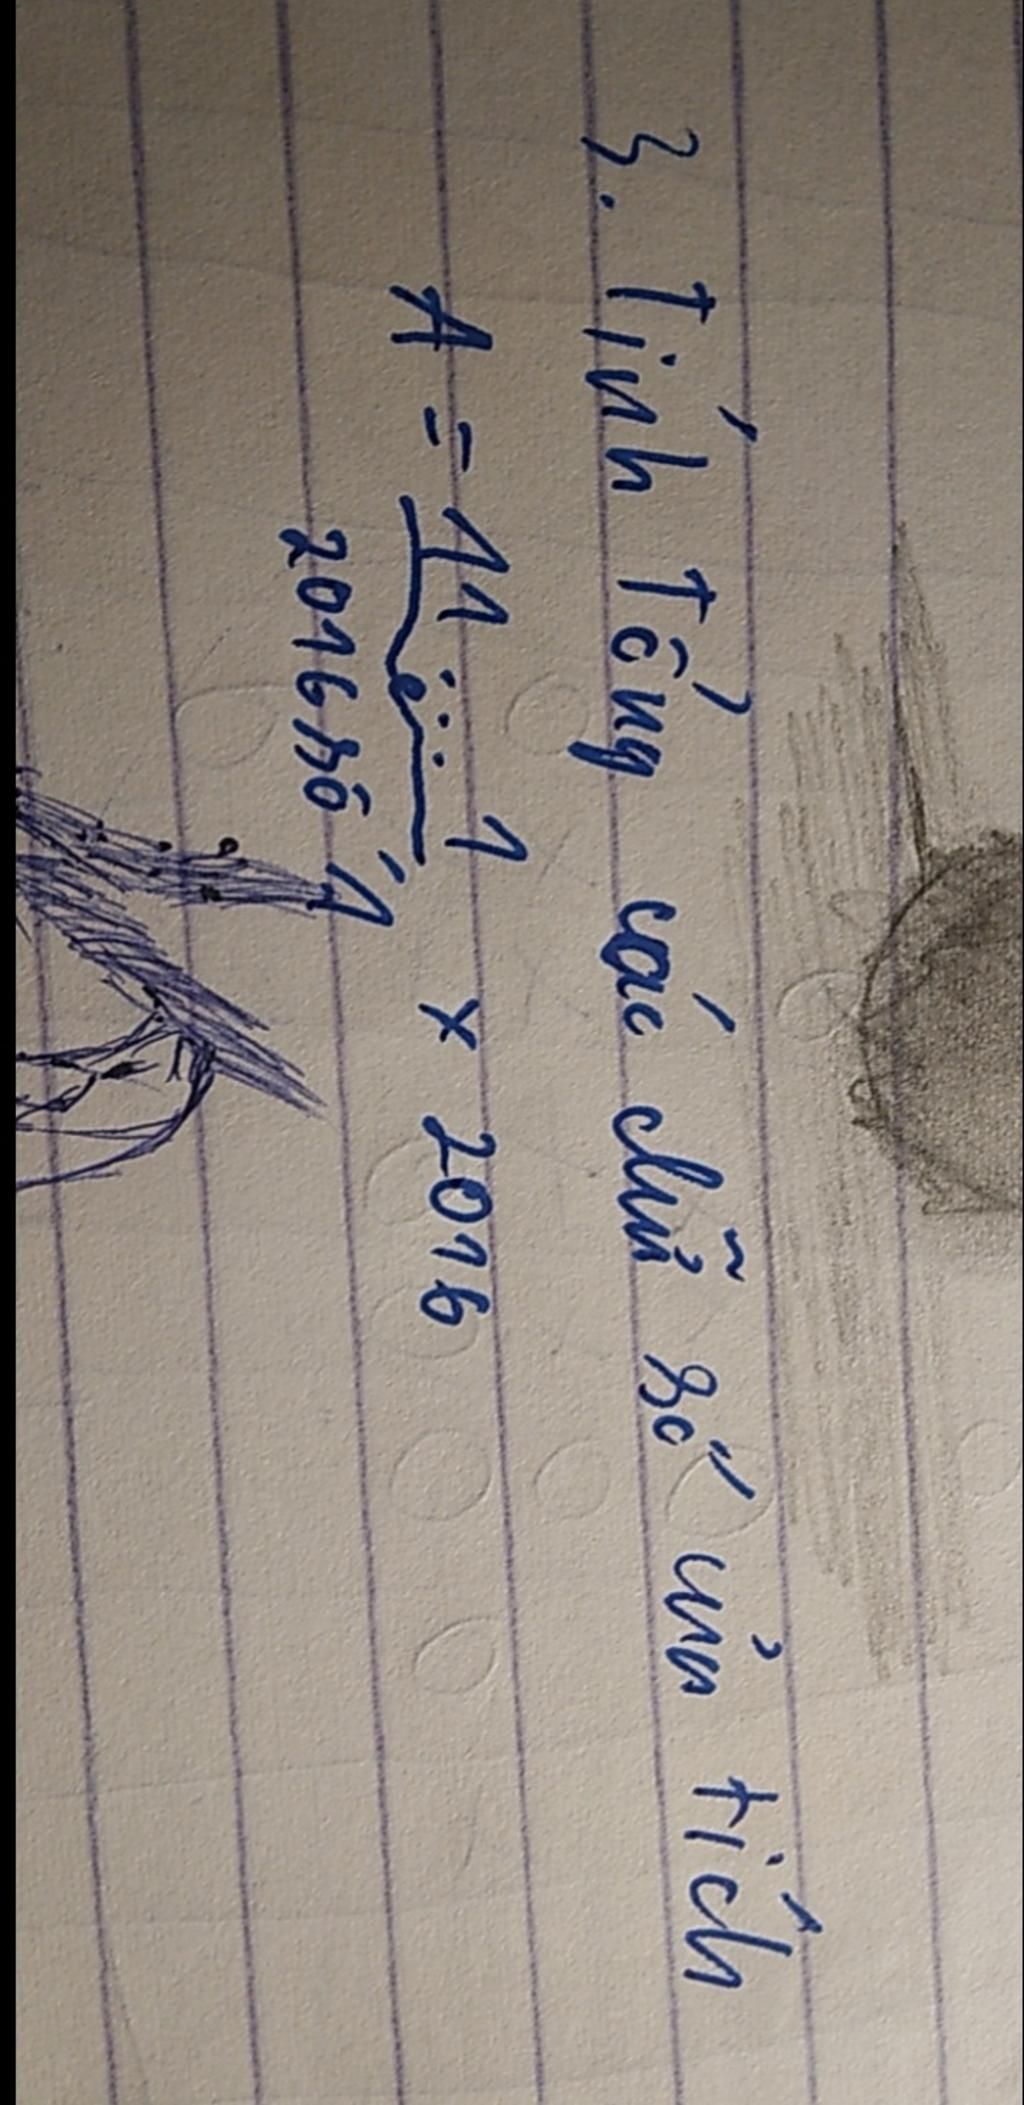 3. Tính tổng các chữ số của tích
A = 11...1 x 2016
2016 số 1